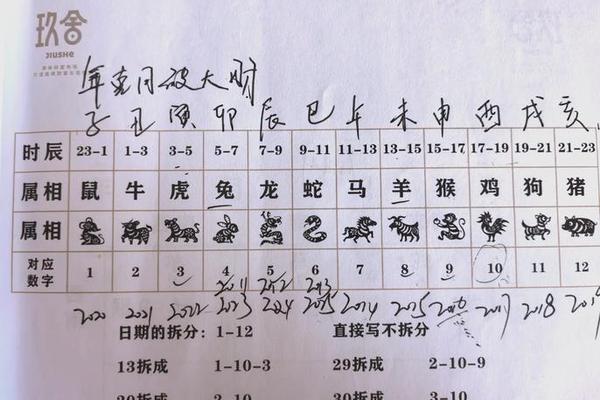 玖舍
JIUSHE
年克月破大财
子 丑 寅 卯 辰 巳 午 未 申 酉 戌 亥
时辰 23-1 1-3 3-5 5-7 7-9 9-11 11-13 13-15 15-17 17-19 19-21 21-23
属相 鼠 牛 虎 兔 龙 蛇 马 羊 猴 鸡 狗 猪
属相
对应数字 1 2 3 4 5 6 7 8 9 10 11 12
2011 2012 2013
2020 2021 2022 2023 2024 2025 2014 2015 2016 2017 2018 2019
日期的拆分：1-12 直接写不拆分
13拆成 1-10-3 29拆成 2-10-9
20拆成 2-10 30拆成 3-10